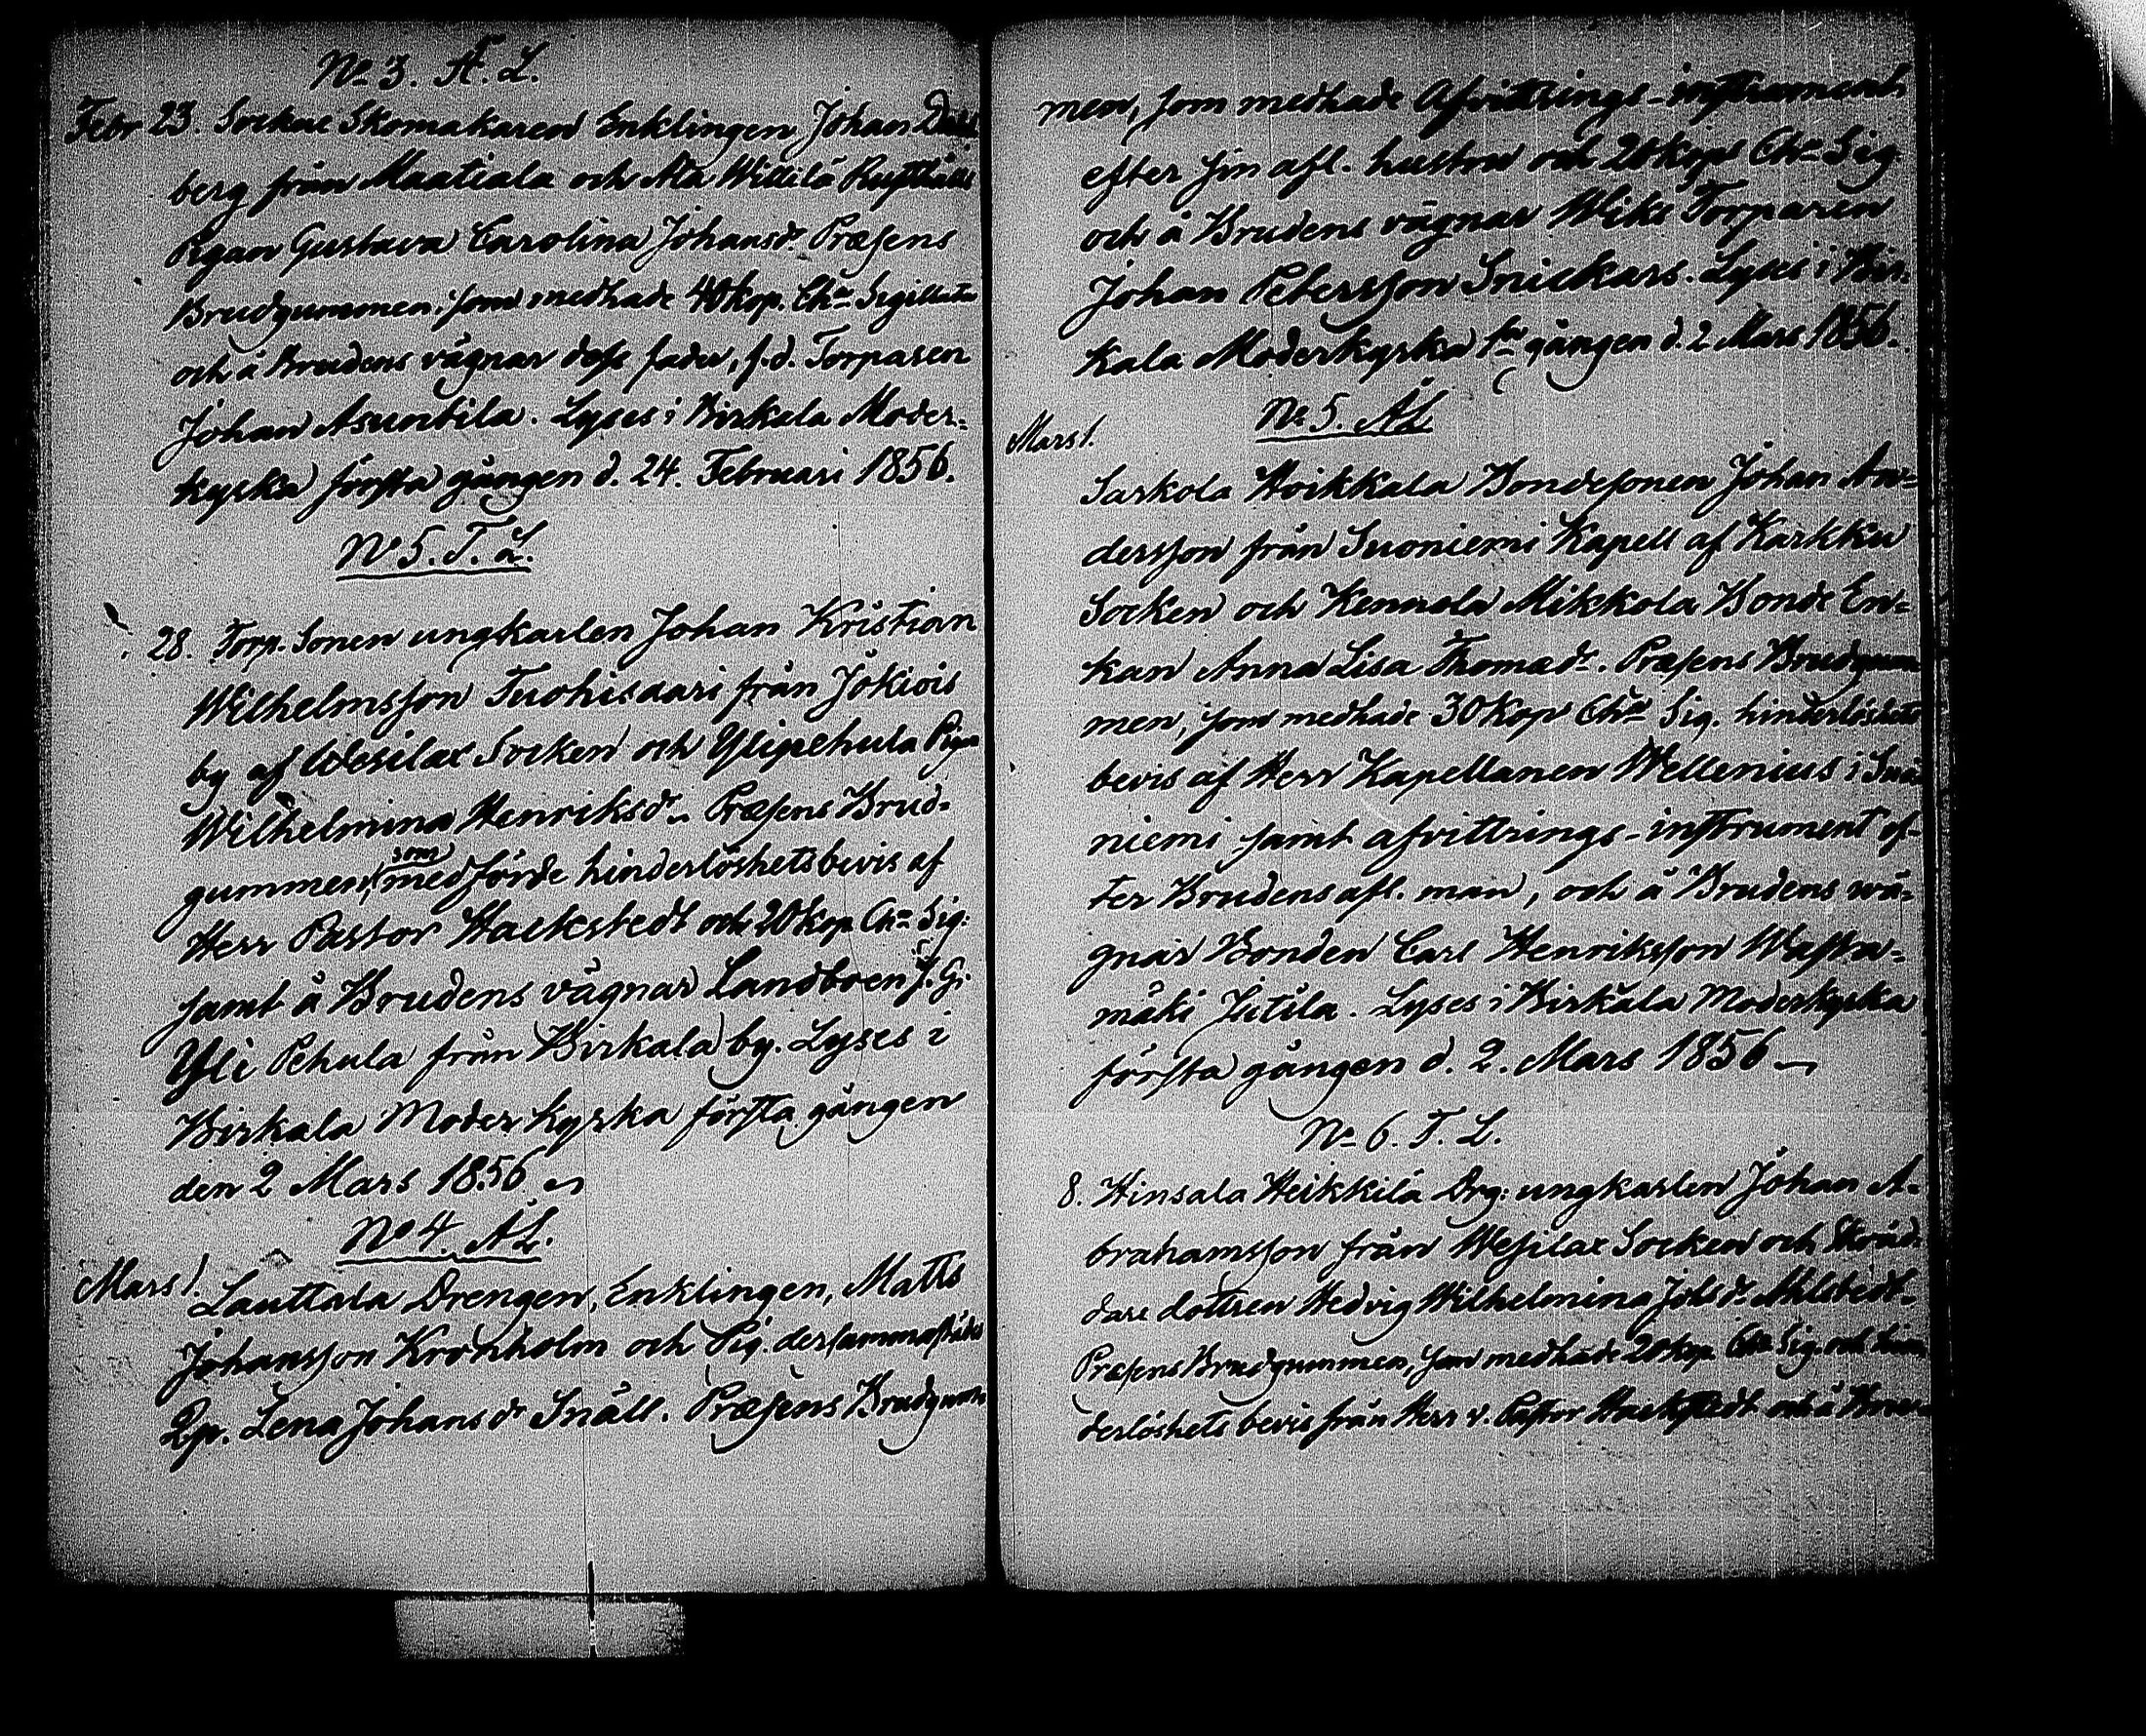 No 3. Å. L.
Febr 23. Sockne Skomakaren Enklingen Johan Dahl
berg från Maatiala och Ala Willilä Rusthålls
Pigan Gustava Carolina Johansdr Præsens
Brudgummen, som medhade 40 kop. Cha Sigillata
och å Brudens vägnar dess fader, f.d. Torparen
Johan Asuntila. Lyses i Birkala Moder-
kyrka första gången d. 24. Februari 1856.
No 5. T. L.
28. Torp. Sonen ungkarlen Johan Kristian
Wilhelmsson Tuohisaari från Jokiois
by af Wesilax Socken och Ylipehula Piga
Wilhelmina Henriksdr Præsens Brud-
gummen, som medförde hinderlöshetsbevis af
Herr Pastor Hackstedt och 20 kop Cha Sig:
samt å Brudens vägnar Landboen J. G.
Yli Pehula från Birkala by. Lyses i
Birkala Moder kyrka första gången
den 2 Mars 1856
No 4. ÅL.
Mars 1. Lauttala Drengen, Enklingen, Matts
Johansson Kronholm och Pig. dersammastädes
Qp. Lena Johansdr Snäll. Præsens Brudgum
men, som medhade Afvittrings-instrument
efter sin afl. hustru och 20 kops Cha Sig
och å Brudens vägnar Wiks Torparen
Johan Petersson Snickars. Lyses i Bir-
kala Moderkyrka 1sta gången d. 2 Mars 1856.
No 5. ÅL.
Mars 1.
Sarkola Hoikkala Bondesonen Johan An-
dersson från Suoniemi Kapell af Karkku
Socken och Kennola Mikkola Bonde En-
kan Anna Lisa Thomædr. Præsens Brudgum
men, som medhade 30 Kop Cha Sig. hinderlöshets
bevis af Herr Kapellanen Wellenius i Suo
niemi samt afvittrings-instrument ef-
ter Brudens afl. man, och å Brudens wä-
gnar Bonden Carl Henriksson Wasta-
mäki Jutila. Lyses i Birkala Moderkyrka
första gången d. 2. Mars 1856
No 6. T. L.
8. Hinsala Heikkilä Drg: ungkarlen Johan A-
brahamsson från Wesilax Socken och Skräd
dare dottren Hedvig Wilhelmina Johsdr Ahlstedt.
Præsens Brudgummen, som medhade 20 kop Cha Sig. och hin
derlöshets bevis från Herr v. Pastor Hackstedt och å Bru-